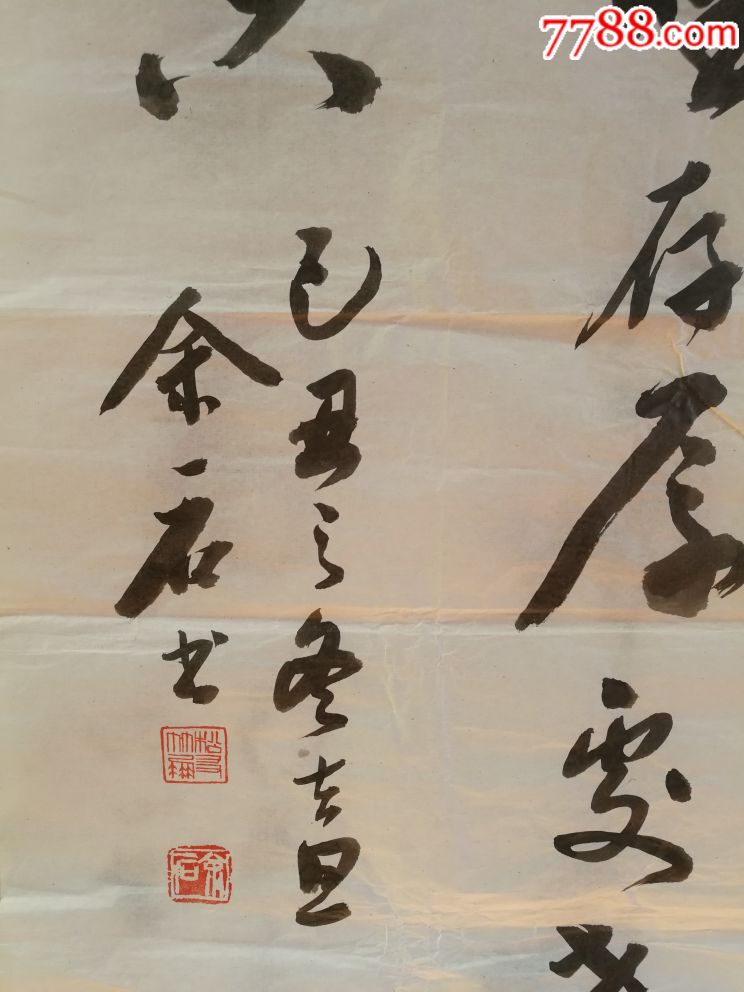 7788.com
存厚處
己丑之冬吉旦
余石书
余石